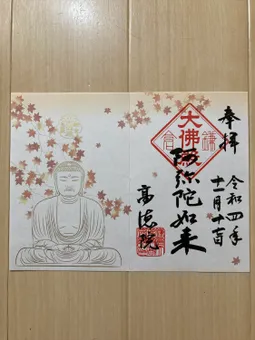 奉拝
令和四年
十一月
大佛殿
鎌倉
阿彌陀如来
高徳院